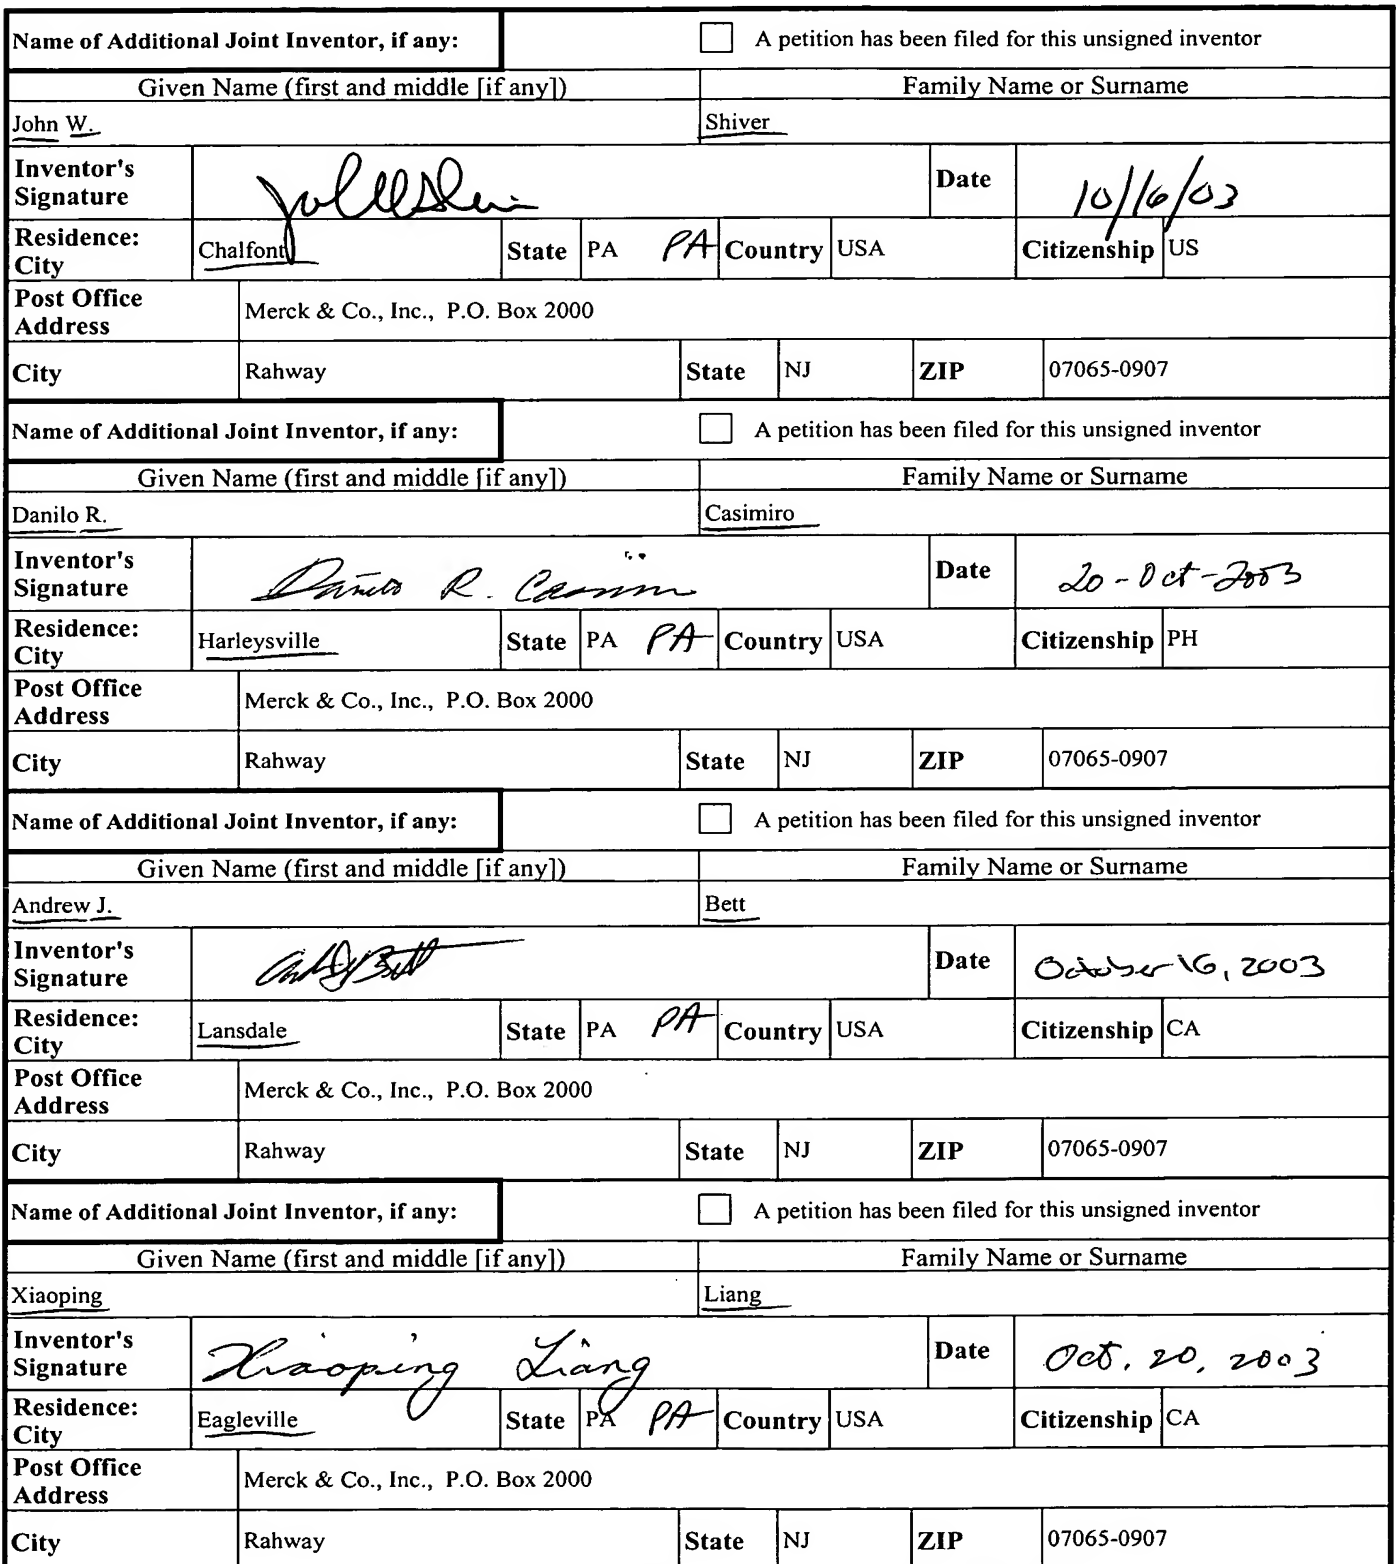 Name of Additional Joint Inventor, if any: A petition has been filed for this unsigned inventor
Given Name (first and middle [if any]) Family Name or Surname
John W. Shiver
Inventor's Signature Date 10/16/03
Residence: City Chalfont State PA PA Country USA Citizenship US
Post Office Address Merck & Co., Inc., P.O. Box 2000
City Rahway State NJ ZIP 07065-0907
Name of Additional Joint Inventor, if any: A petition has been filed for this unsigned inventor
Given Name (first and middle [if any]) Family Name or Surname
Danilo R. Casimiro
Inventor's Signature Danilo R. Casimiro Date 20-Oct-2003
Residence: City Harleysville State PA PA Country USA Citizenship PH
Post Office Address Merck & Co., Inc., P.O. Box 2000
City Rahway State NJ ZIP 07065-0907
Name of Additional Joint Inventor, if any: A petition has been filed for this unsigned inventor
Given Name (first and middle [if any]) Family Name or Surname
Andrew J. Bett
Inventor's Signature Date October 16, 2003
Residence: City Lansdale State PA PA Country USA Citizenship CA
Post Office Address Merck & Co., Inc., P.O. Box 2000
City Rahway State NJ ZIP 07065-0907
Name of Additional Joint Inventor, if any: A petition has been filed for this unsigned inventor
Given Name (first and middle [if any]) Family Name or Surname
Xiaoping Liang
Inventor's Signature Xiaoping Liang Date Oct. 20, 2003
Residence: City Eagleville State PA PA Country USA Citizenship CA
Post Office Address Merck & Co., Inc., P.O. Box 2000
City Rahway State NJ ZIP 07065-0907